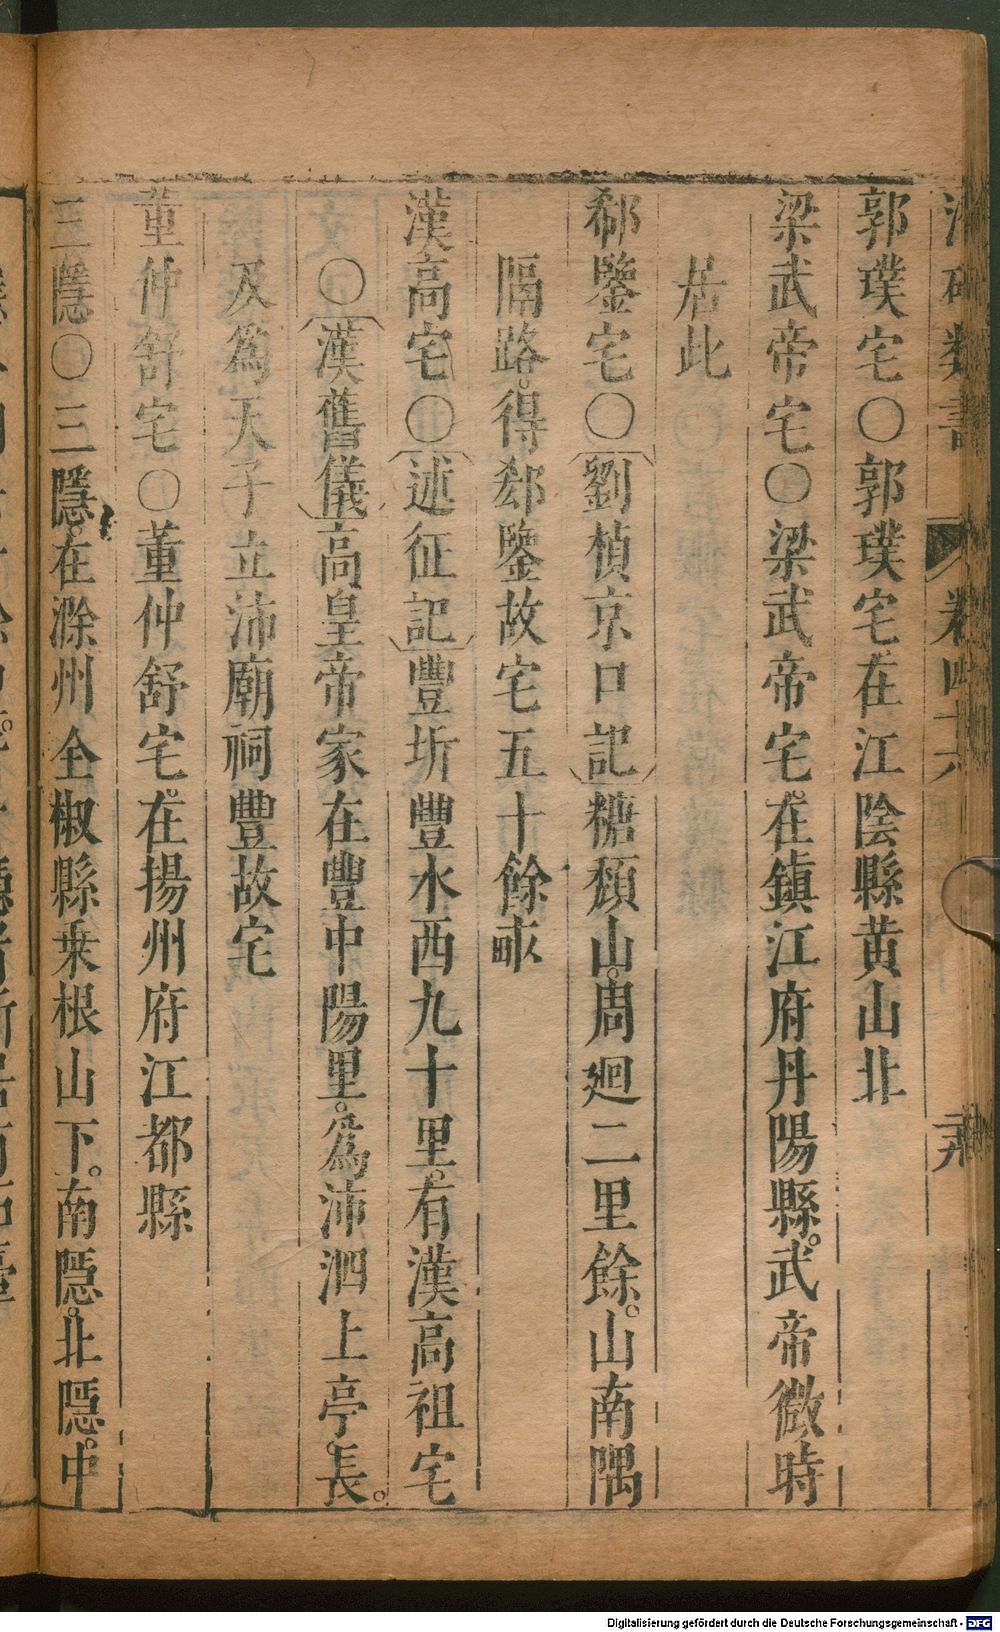 類書 卷四十六
郭璞宅〇郭璞宅在江陰縣黄山北
梁武帝宅〇梁武帝宅在鎮江府丹陽縣。武帝微時
居此
郗鑒宅〇劉楨京口記糖頹山。周廻二里餘。山南隅
隔路。得郄鑒故宅五十餘畝
漢高宅〇述征記豐圻豐水西九十里。有漢高祖宅
〇漢舊儀高皇帝家在豐中陽里。為沛泗上亭長。
及為天子立沛廟祠豐故宅
董仲舒宅〇董仲舒宅在揚州府江都縣
三隱〇三隱。在滁州全椒縣桒根山下。南隱。北隱。中
Digitalisierung gefördert durch die Deutsche Forschungsgemeinschaft - DFG